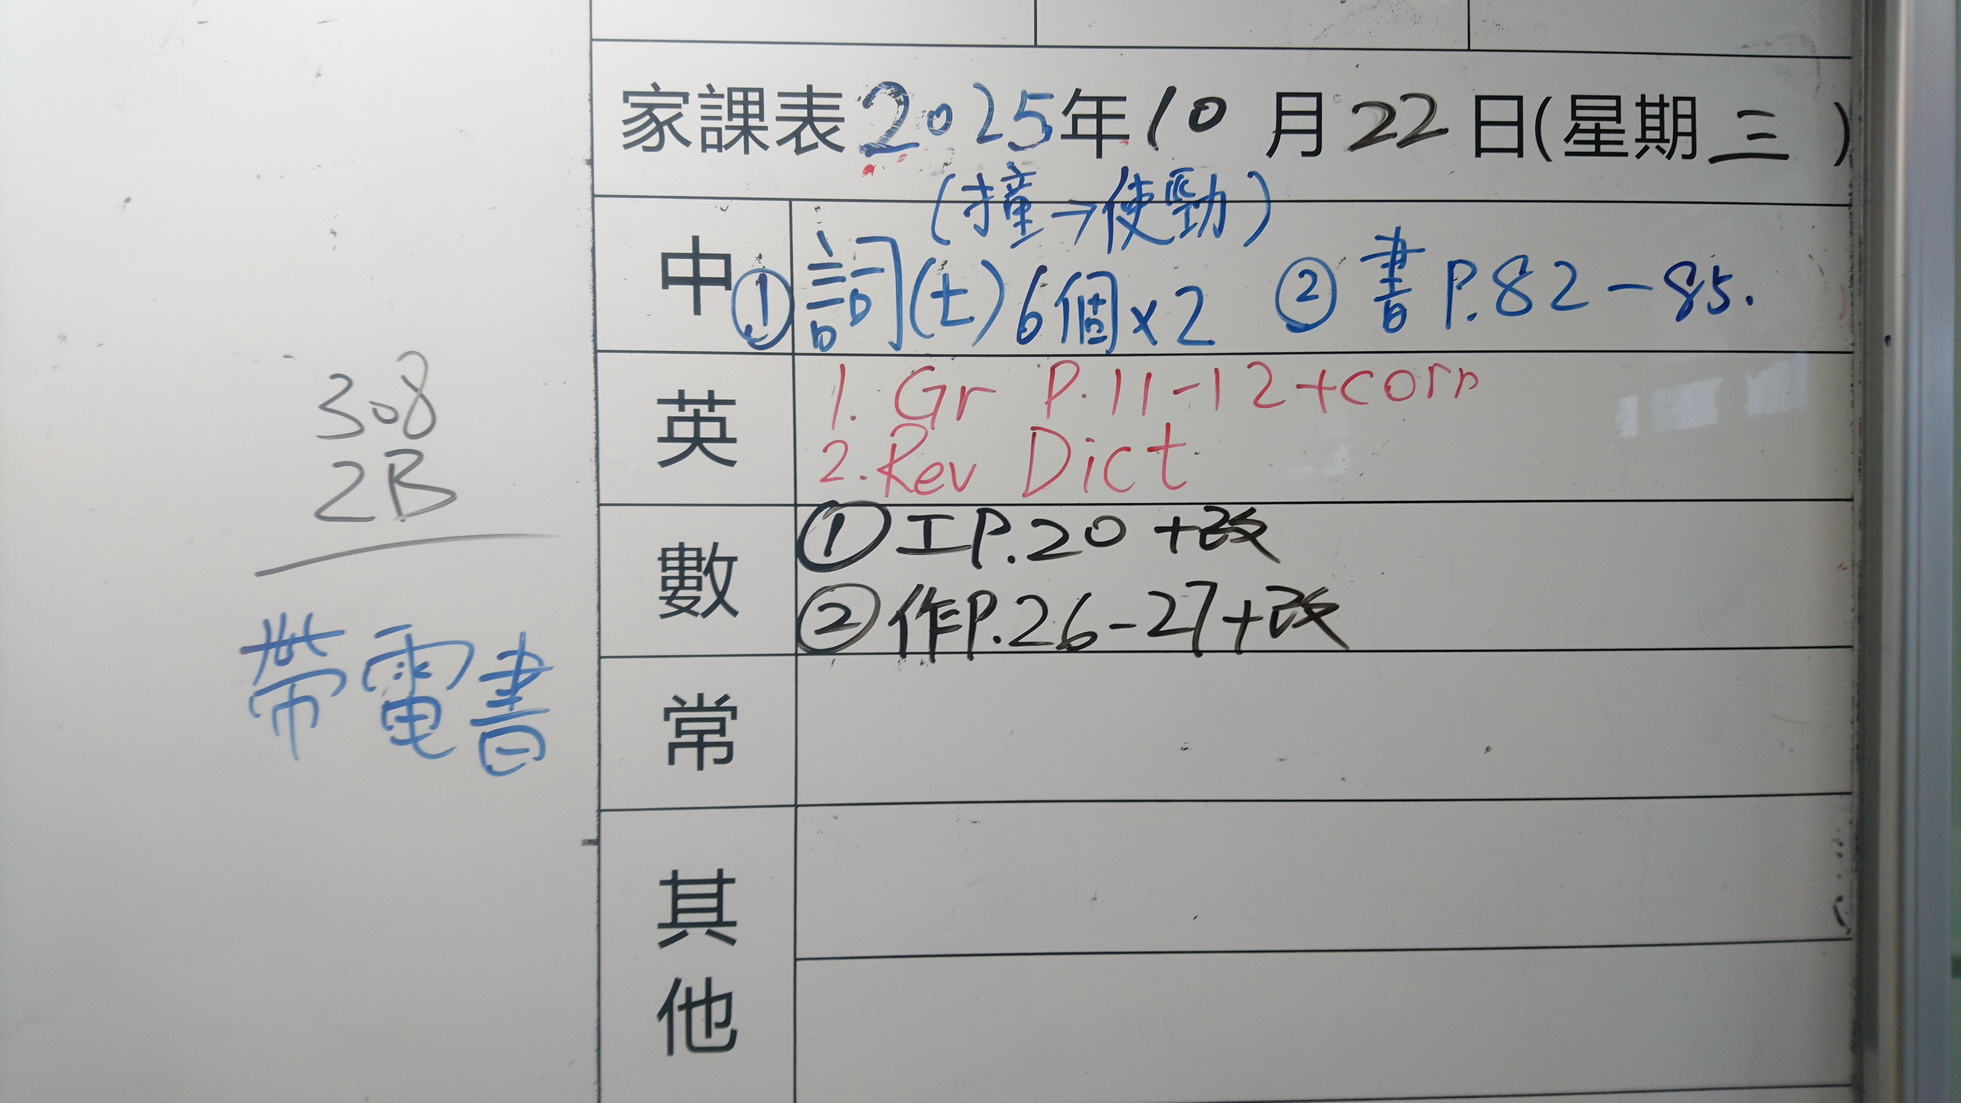 家課表2025年10月22日(星期三)
(撞→使勁)
中 ①詞(七)6個x2 ②書P.82-85.
英 1. Gr P.11-12+corr
2. Rev Dict
數 ①工P.20+改
②作P.26-27+改
常
其他
308
2B
帶電書